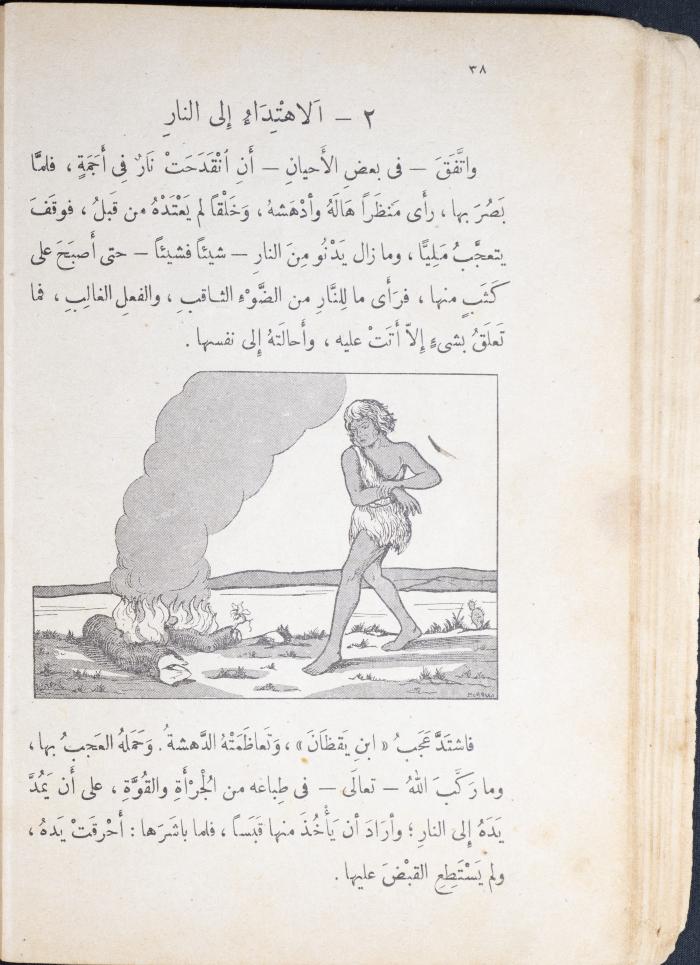 ٣٨
٢ – اَلاهْتِدَاءُ إلى النارِ
واتَّفَقَ – فى بعضِ الأَحيانِ – أَنِ ٱنْقَدَحَتْ نَارٌ فى أَجَمَةٍ ، فلمَّا
بَصُرَ بها ، رأَى مَنظَراً هَالَهُ وأدْهَشهُ ، وَخَلْقاً لم يَعْتَدْهُ من قبلُ ، فوقَفَ
يتعجَّبُ مَلِيًّا ، وما زال يَدْنُو مِنَ النارِ – شيئاً فشيئاً – حتى أصبَحَ على
كثَبٍ منها ، فرَأَى ما لِلنَّارِ من الضَّوْءِ الثاقبِ ، والفعلِ الغالِبِ ، فما
تَعلَقُ بشىءٍ إلاّ أَتَتْ عليه ، وأحالَتهُ إلى نفسها .
فاشتَدَّ عَجَبُ « ابنِ يَقظَانَ » ، وَتَعاظَمَتْهُ الدَّهشةُ . وَحَمَلهُ العَجبُ بها ،
وما رَكَّبَ اللهُ – تعالَى – فى طِباعه من الجُرْأَةِ والقُوَّةِ ، على أَن يَمُدَّ
يَدَهُ إلى النارِ ؛ وأرَادَ أن يَأْخُذَ منها قَبَساً ، فلما باشَرَها : أَحْرقَتْ يَدهُ ،
ولم يَسْتَطِعِ القبْضَ عليها .